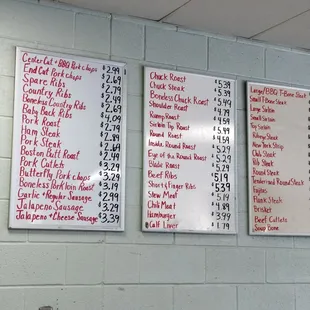 Center Cut + BBQ Pork chops $2.99
End Cut Pork chops $2.69
Spare Ribs $2.79
Country Ribs $2.49
Boneless Country Ribs $2.69
Baby Back Ribs $4.09
Pork Roast $2.79
Ham Steak $2.79
Pork Steak $2.49
Boston Butt Roast $2.49
Pork Cutlets $3.29
Butterfly Pork chops
Boneless Porkloin Roast $3.19
Garlic & Regular Sausage $2.99
Jalapeno Sausage $3.29
Jalapeno + Cheese Sausage $3.39
Chuck Roast $5.39
Chuck Steak $5.39
Boneless Chuck Roast $5.39
Shoulder Roast
Rump Roast
Sirloin Tip Roast
Round Roast
Inside Round Roast
Eye of the Round Roast
Blade Roast
Beef Ribs
Short & Finger Ribs $5.39
Stew Meat
Chili Meat $4.89
Hamburger $3.99
Calf Liver $1.79
Large/BBQ T-Bone Steak
Small T-Bone Steak
Large Sirloin
Small Sirloin
Top Sirloin
Ribeye Steak
New York Strip
Club Steak
Rib Steak
Round Steak
Tenderized Round Steak
Fajitas
Flank Steak
Brisket
Beef Cutlets
Soup Bone